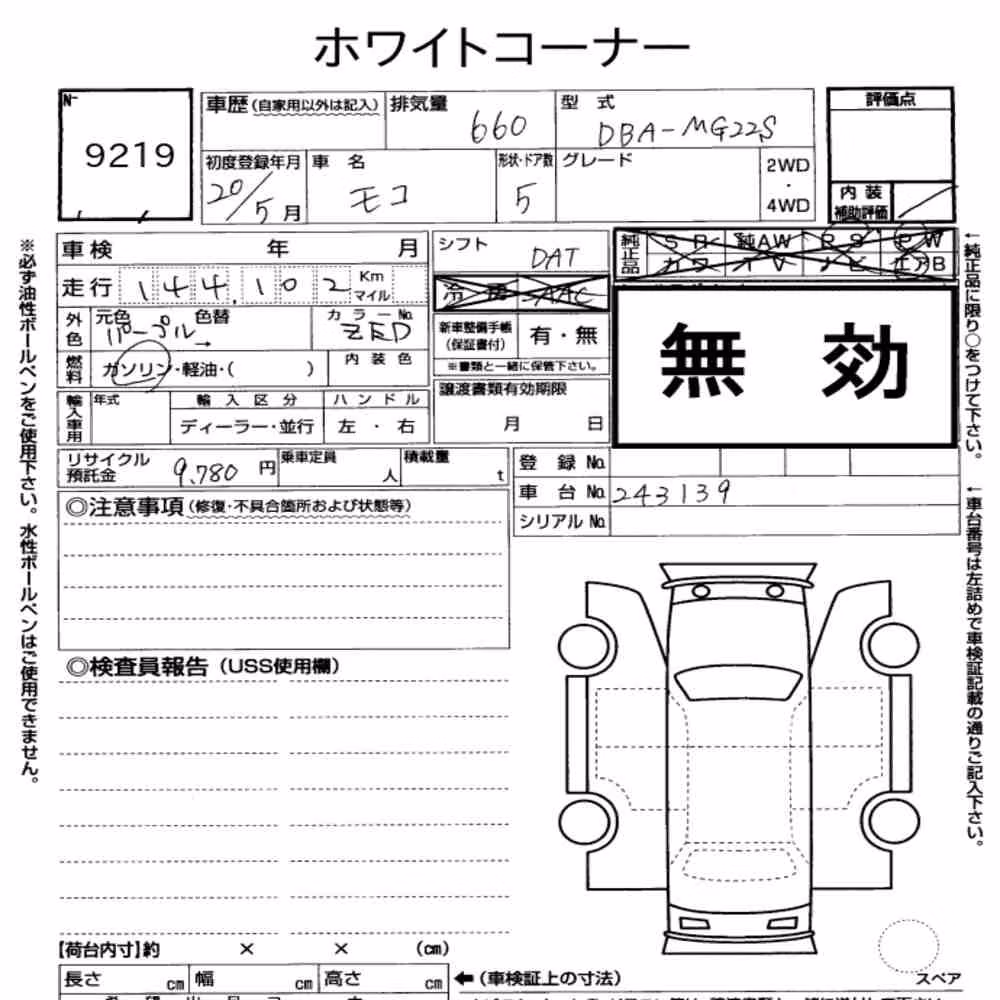 ホワイトコーナー
№ 9219
車歴(自家用以外は記入) 排気量 660
型 式 DBA-MG22S
評価点
初度登録年月 20/5月
車 名 モコ
形状・ドア数 5
グレード
2WD
・
4WD
内 装
補助評価
※必ず油性ボールペンをご使用下さい。水性ボールペンはご使用できません。
車検 年 月
シフト DAT
純正品 SR 純AW PS PW
カワ TV ナビ エアB
走行 144,102 Km
マイル
冷房 AAC
外色 元色 パープル 色替 →
カラー№ ZED
新車整備手帳
(保証書付) 有・無
※書類と一緒に保管下さい。
無 効
燃料 ガソリン・軽油・( )
内 装 色
譲渡書類有効期限
月 日
輸入車用 年式 輸 入 区 分 ハ ン ド ル
ディーラー・並行 左 ・ 右
←純正品に限り○をつけて下さい。
リサイクル
預託金 9,780 円
乗車定員 人
積載量 t
登 録 №
車 台 № 243139
シリアル №
←車台番号は左詰めで車検証記載の通りご記入下さい。
◎注意事項(修復・不具合箇所および状態等)
◎検査員報告(USS使用欄)
【荷台内寸】約 × × (㎝)
長さ ㎝ 幅 ㎝ 高さ ㎝
←(車検証上の寸法)
スペア